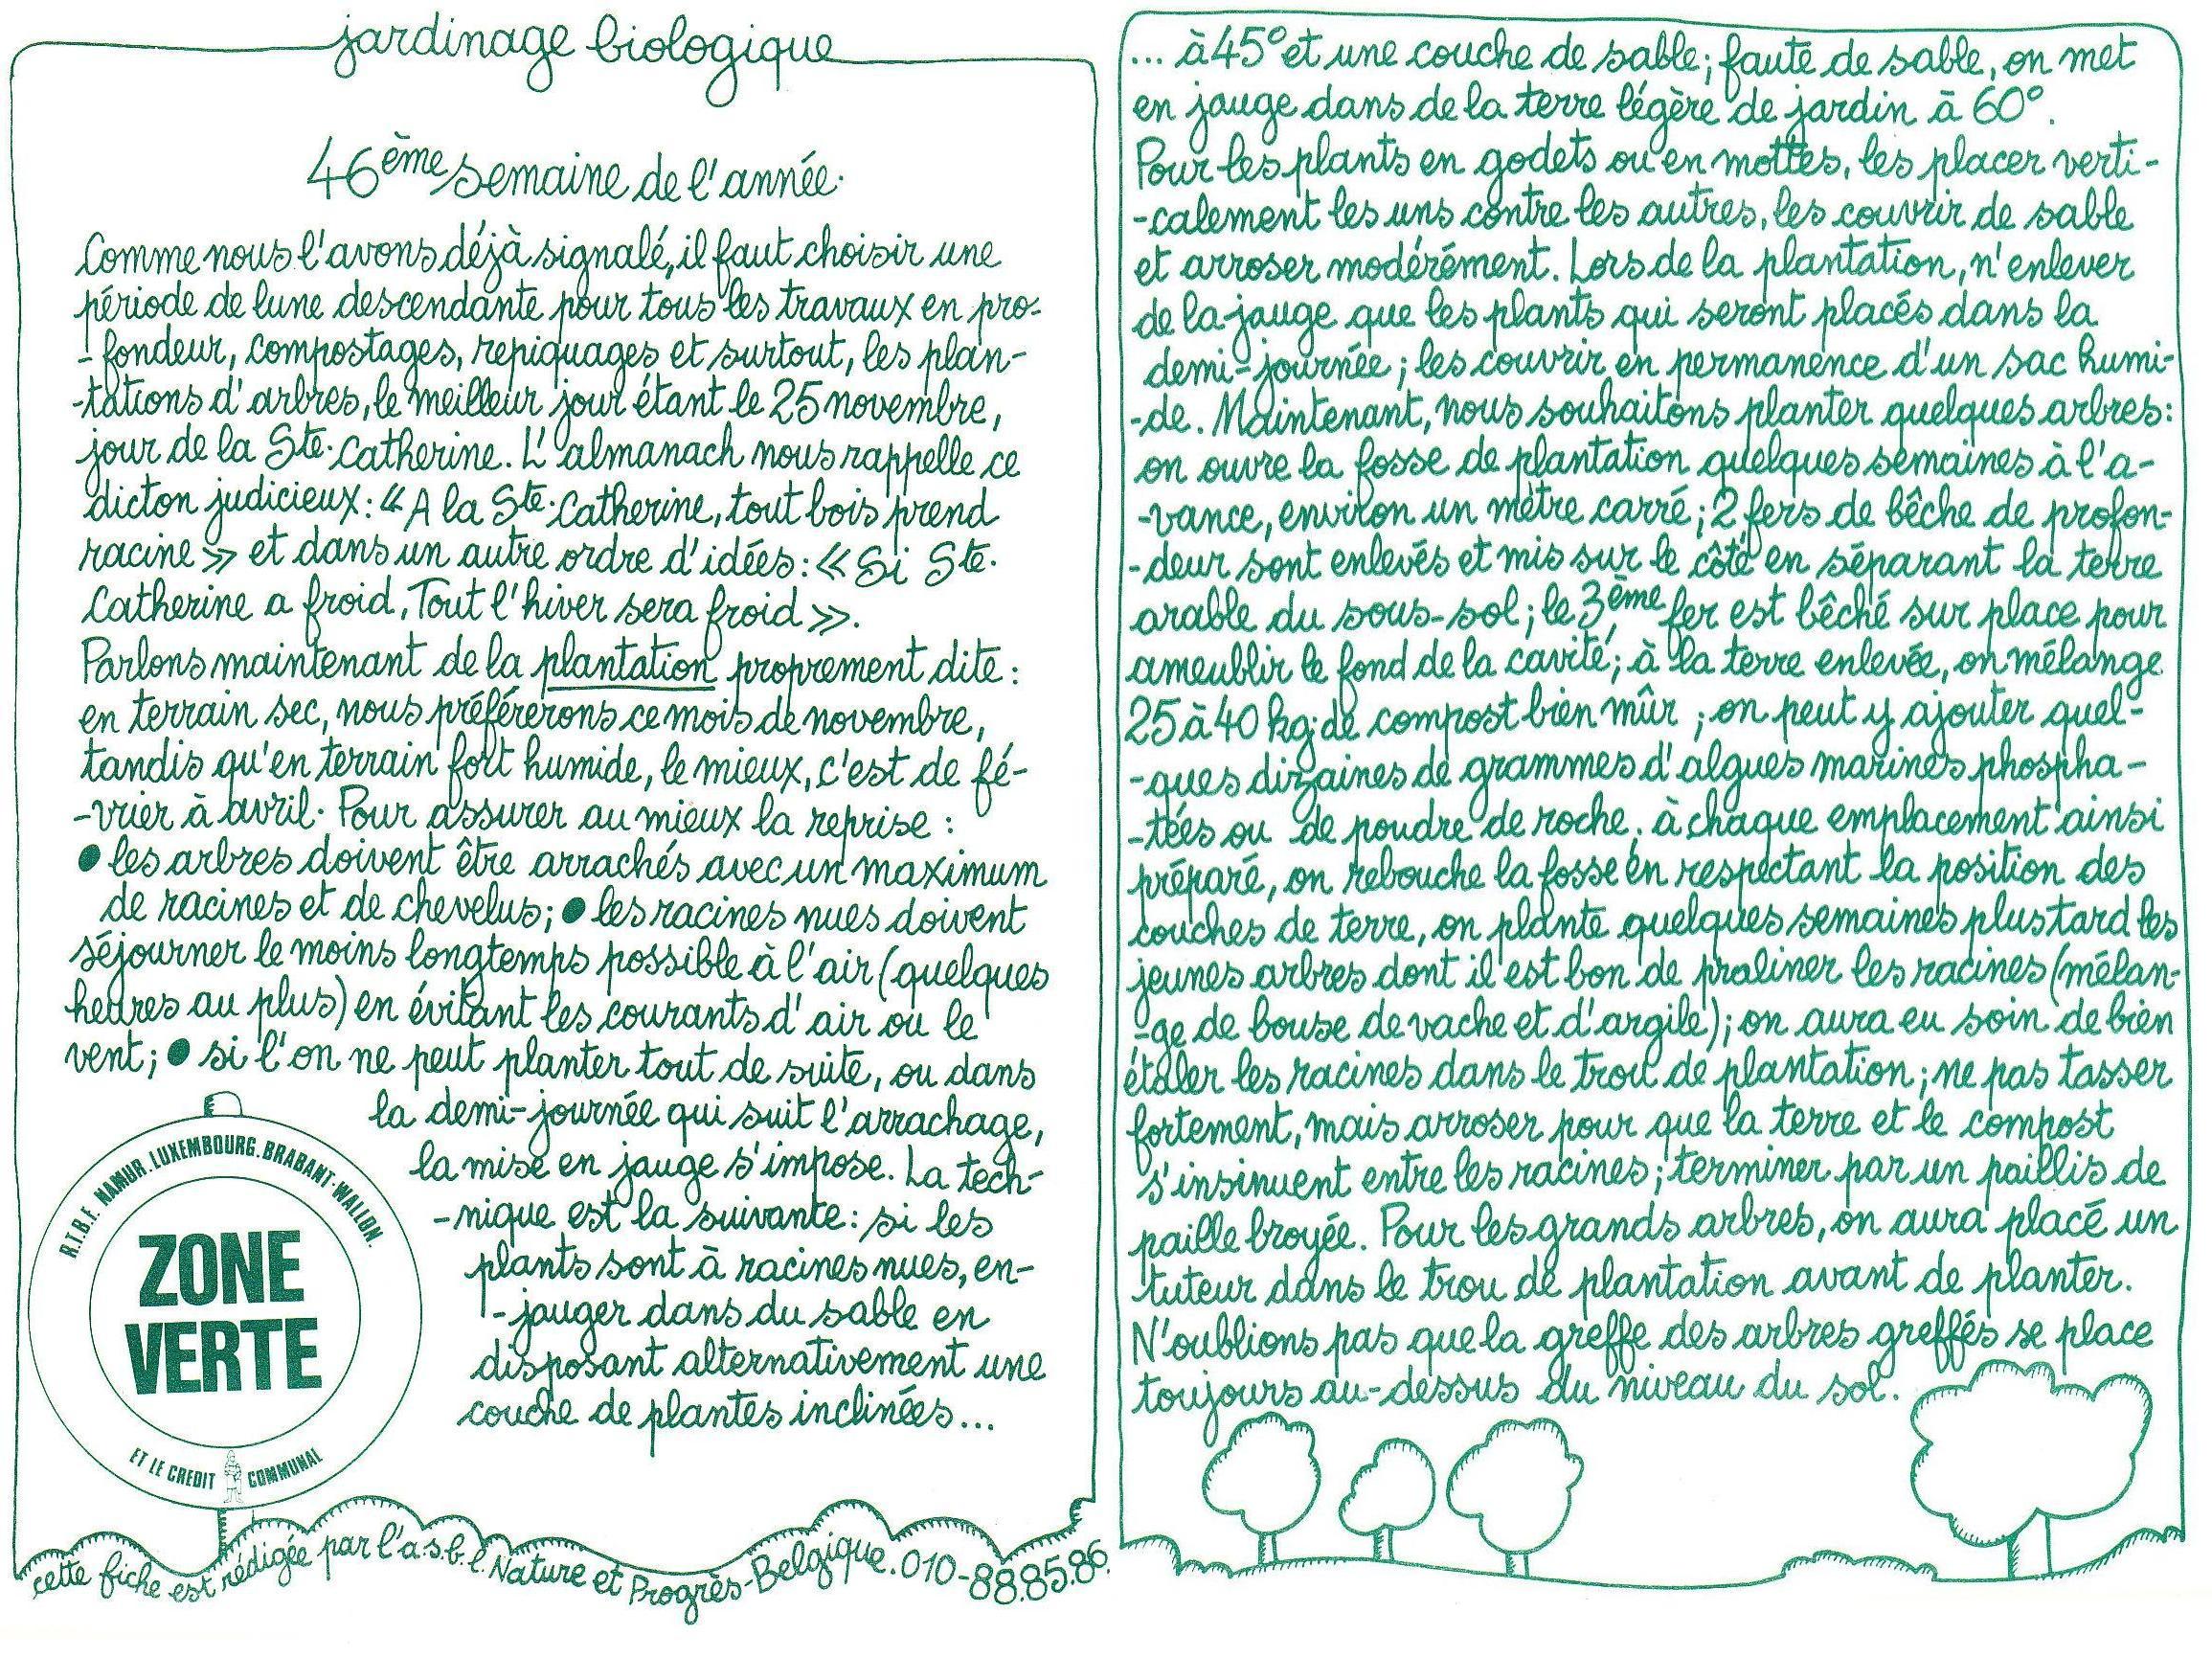 jardinage biologique
46ème semaine de l'année.
Comme nous l'avons déjà signalé, il faut choisir une
période de lune descendante pour tous les travaux en pro-
-fondeur, compostages, repiquages et surtout, les plan-
-tations d'arbres, le meilleur jour étant le 25 novembre,
jour de la Ste.Catherine. L'almanach nous rappelle ce
dicton judicieux: « A la Ste.Catherine, tout bois prend
racine » et dans un autre ordre d'idées: « Si Ste.
Catherine a froid, Tout l'hiver sera froid ».
Parlons maintenant de la plantation proprement dite :
en terrain sec, nous préférerons ce mois de novembre,
tandis qu'en terrain fort humide, le mieux, c'est de fé-
-vrier à avril. Pour assurer au mieux la reprise :
● les arbres doivent être arrachés avec un maximum
de racines et de chevelus; ● les racines nues doivent
séjourner le moins longtemps possible à l'air (quelques
heures au plus) en évitant les courants d'air ou le
vent; ● si l'on ne peut planter tout de suite, ou dans
la demi-journée qui suit l'arrachage,
la mise en jauge s'impose. La tech-
-nique est la suivante: si les
plants sont à racines nues, en-
-jauger dans du sable en
disposant alternativement une
couche de plantes inclinées...
R.T.B.F. NAMUR. LUXEMBOURG. BRABANT-WALLON.
ZONE
VERTE
ET LE CREDIT COMMUNAL
cette fiche est rédigée par l'a.s.b.l. Nature et Progrès-Belgique. 010-88.85.86.
... à 45° et une couche de sable; faute de sable, on met
en jauge dans de la terre légère de jardin à 60°.
Pour les plants en godets ou en mottes, les placer verti-
-calement les uns contre les autres, les couvrir de sable
et arroser modérément. Lors de la plantation, n'enlever
de la jauge que les plants qui seront placés dans la
demi-journée; les couvrir en permanence d'un sac humi-
-de. Maintenant, nous souhaitons planter quelques arbres:
on ouvre la fosse de plantation quelques semaines à l'a-
-vance, environ un mètre carré; 2 fers de bêche de profon-
-deur sont enlevés et mis sur le côté en séparant la terre
arable du sous-sol; le 3ème fer est bêché sur place pour
ameublir le fond de la cavité; à la terre enlevée, on mélange
25 à 40 kg. de compost bien mûr ; on peut y ajouter quel-
-ques dizaines de grammes d'algues marines phospha-
-tées ou de poudre de roche. à chaque emplacement ainsi
préparé, on rebouche la fosse en respectant la position des
couches de terre, on plante quelques semaines plus tard les
jeunes arbres dont il est bon de praliner les racines (mélan-
-ge de bouse de vache et d'argile); on aura eu soin de bien
étaler les racines dans le trou de plantation; ne pas tasser
fortement, mais arroser pour que la terre et le compost
s'insinuent entre les racines; terminer par un paillis de
paille broyée. Pour les grands arbres, on aura placé un
tuteur dans le trou de plantation avant de planter.
N'oublions pas que la greffe des arbres greffés se place
toujours au-dessus du niveau du sol.